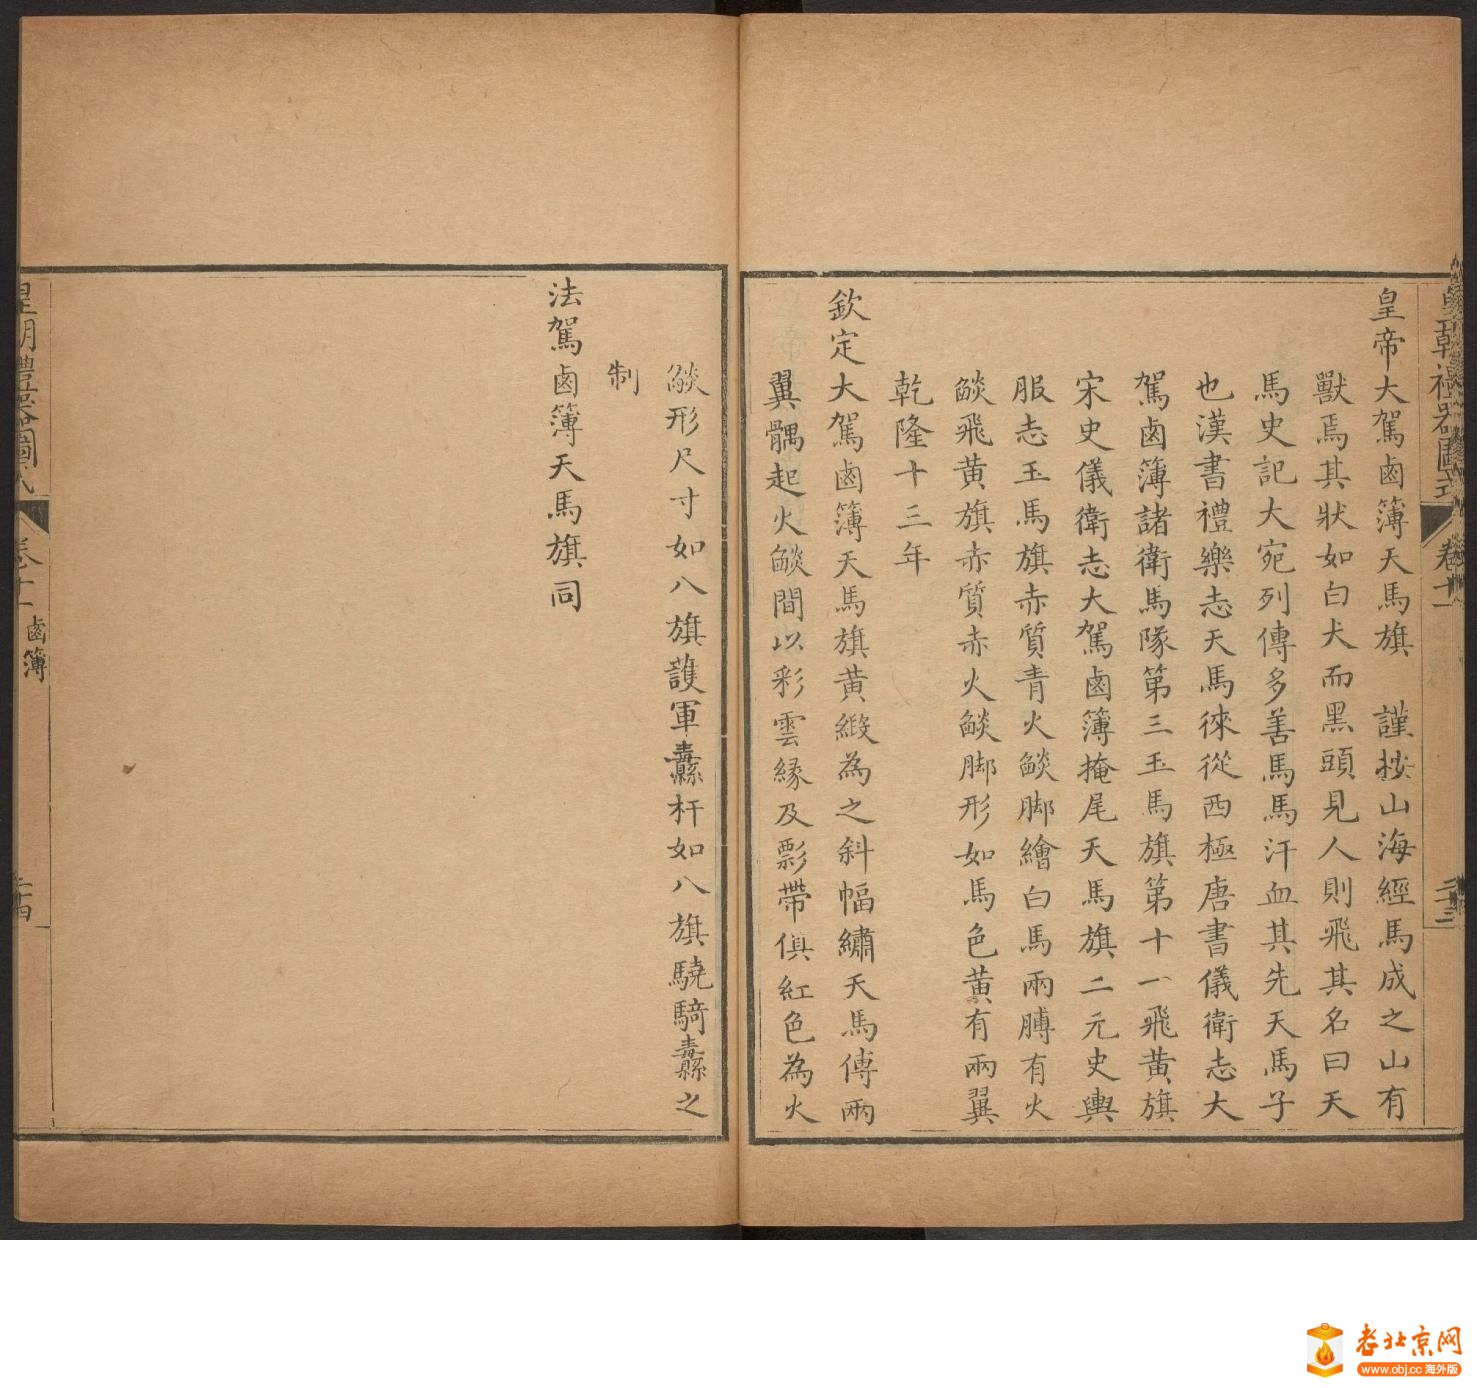 皇朝禮器圖式 卷十一 二十三
皇帝大駕鹵簿天馬旗 謹按山海經馬成之山有
獸焉其狀如白犬而黑頭見人則飛其名曰天
馬史記大宛列傳多善馬馬汗血其先天馬子
也漢書禮樂志天馬徠從西極唐書儀衛志大
駕鹵簿諸衛馬隊第三玉馬旗第十一飛黃旗
宋史儀衛志大駕鹵簿掩尾天馬旗二元史輿
服志玉馬旗赤質青火燄脚繪白馬兩膊有火
燄飛黃旗赤質赤火燄脚形如馬色黃有兩翼
乾隆十三年
欽定大駕鹵簿天馬旗黃緞為之斜幅繡天馬傅兩
翼髃起火燄間以彩雲緣及彯帶俱紅色為火
燄形尺寸如八旗護軍纛杆如八旗驍騎纛之
制
法駕鹵簿天馬旗同
皇朝禮器圖式 卷十一 鹵簿 二十四
老北京网
www.obj.cc 海外版